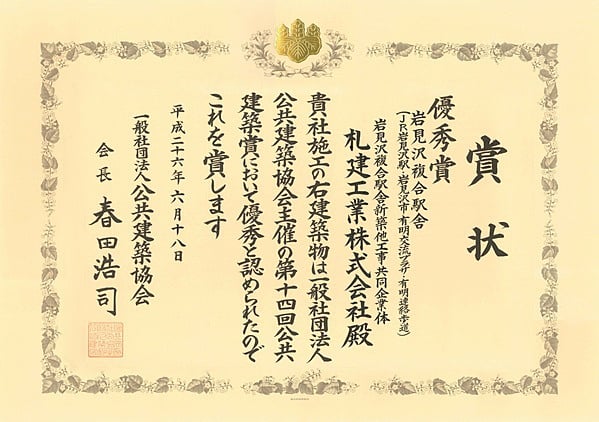 賞状
優秀賞
岩見沢複合駅舎
(JR岩見沢駅・岩見沢市・有明交流プラザ・有明連絡歩道)
岩見沢複合駅舎新築他工事共同企業体
札建工業株式会社殿
貴社施工の右建築物は一般社団法人
公共建築協会主催の第十四回公共
建築賞において優秀と認められたので
これを賞します
平成二十六年六月十八日
一般社団法人公共建築協会
会長 春田浩司